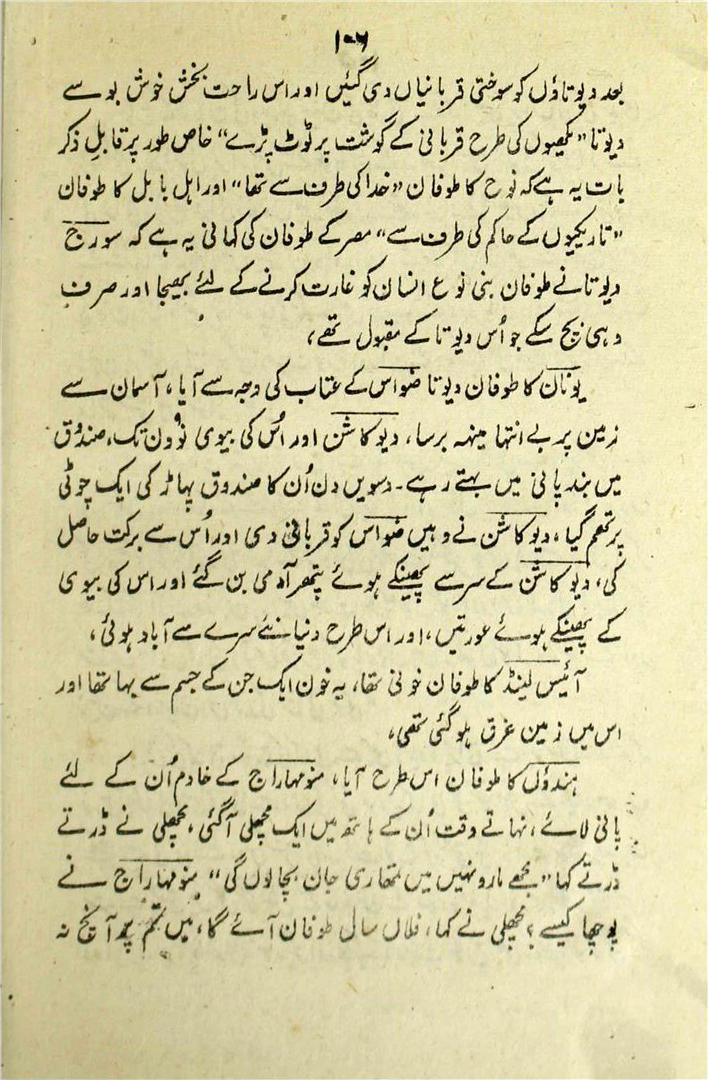 ۱۰۶
بعد دیوتاؤں کو سوختی قربانیاں دی گئیں اور اس راحت بخش خوش بو سے
دیوتا "مکھیوں کی طرح قربانی کے گوشت پر ٹوٹ پڑے" خاص طور پر قابلِ ذکر
بات یہ ہے کہ نوح کا طوفان "خدا کی طرف سے تھا" اور اہل بابل کا طوفان
"تاریکیوں کے حاکم کی طرف سے" مصر کے طوفان کی کہانی یہ ہے کہ سورج
دیوتا نے طوفان بنی نوع انسان کو غارت کرنے کے لئے بھیجا اور صرف
وہی بچ سکے جو اُس دیوتا کے مقبول تھے،
یونان کا طوفان دیوتا ضواس کے عتاب کی وجہ سے آیا، آسمان سے
زمین پر بے انتہا مینہہ برسا، دیوکاشن اور اُس کی بیوی نو دن تک، صندوق
میں بند پانی میں بہتے رہے۔ دسویں دن اُن کا صندوق پہاڑ کی ایک چوٹی
پر تھم گیا، دیوکاشن نے وہیں ضواس کو قربانی دی اور اُس سے برکت حاصل
کی، دیوکاشن کے سر سے پھینکے ہوئے پتھر آدمی بن گئے اور اس کی بیوی
کے پھینکے ہوئے عورتیں، اور اس طرح دنیا نئے سرے سے آباد ہوئی،
آئیس لینڈ کا طوفان خونی تھا، یہ خون ایک جن کے جسم سے بہا تھا اور
اس میں زمین غرق ہو گئی تھی،
ہندوں کا طوفان اس طرح آیا، منو مہاراج کے خادم اُن کے لئے
پانی لائے، نہاتے وقت اُن کے ہاتھ میں ایک مچھلی آگئی، مچھلی نے ڈرتے
ڈرتے کہا "مجھے مارو نہیں میں تمھاری جان بچالوں گی" منو مہاراج نے
پوچھا کیسے؟ مچھلی نے کہا، فلاں سال طوفان آئے گا، میں تم پر آنچ نہ